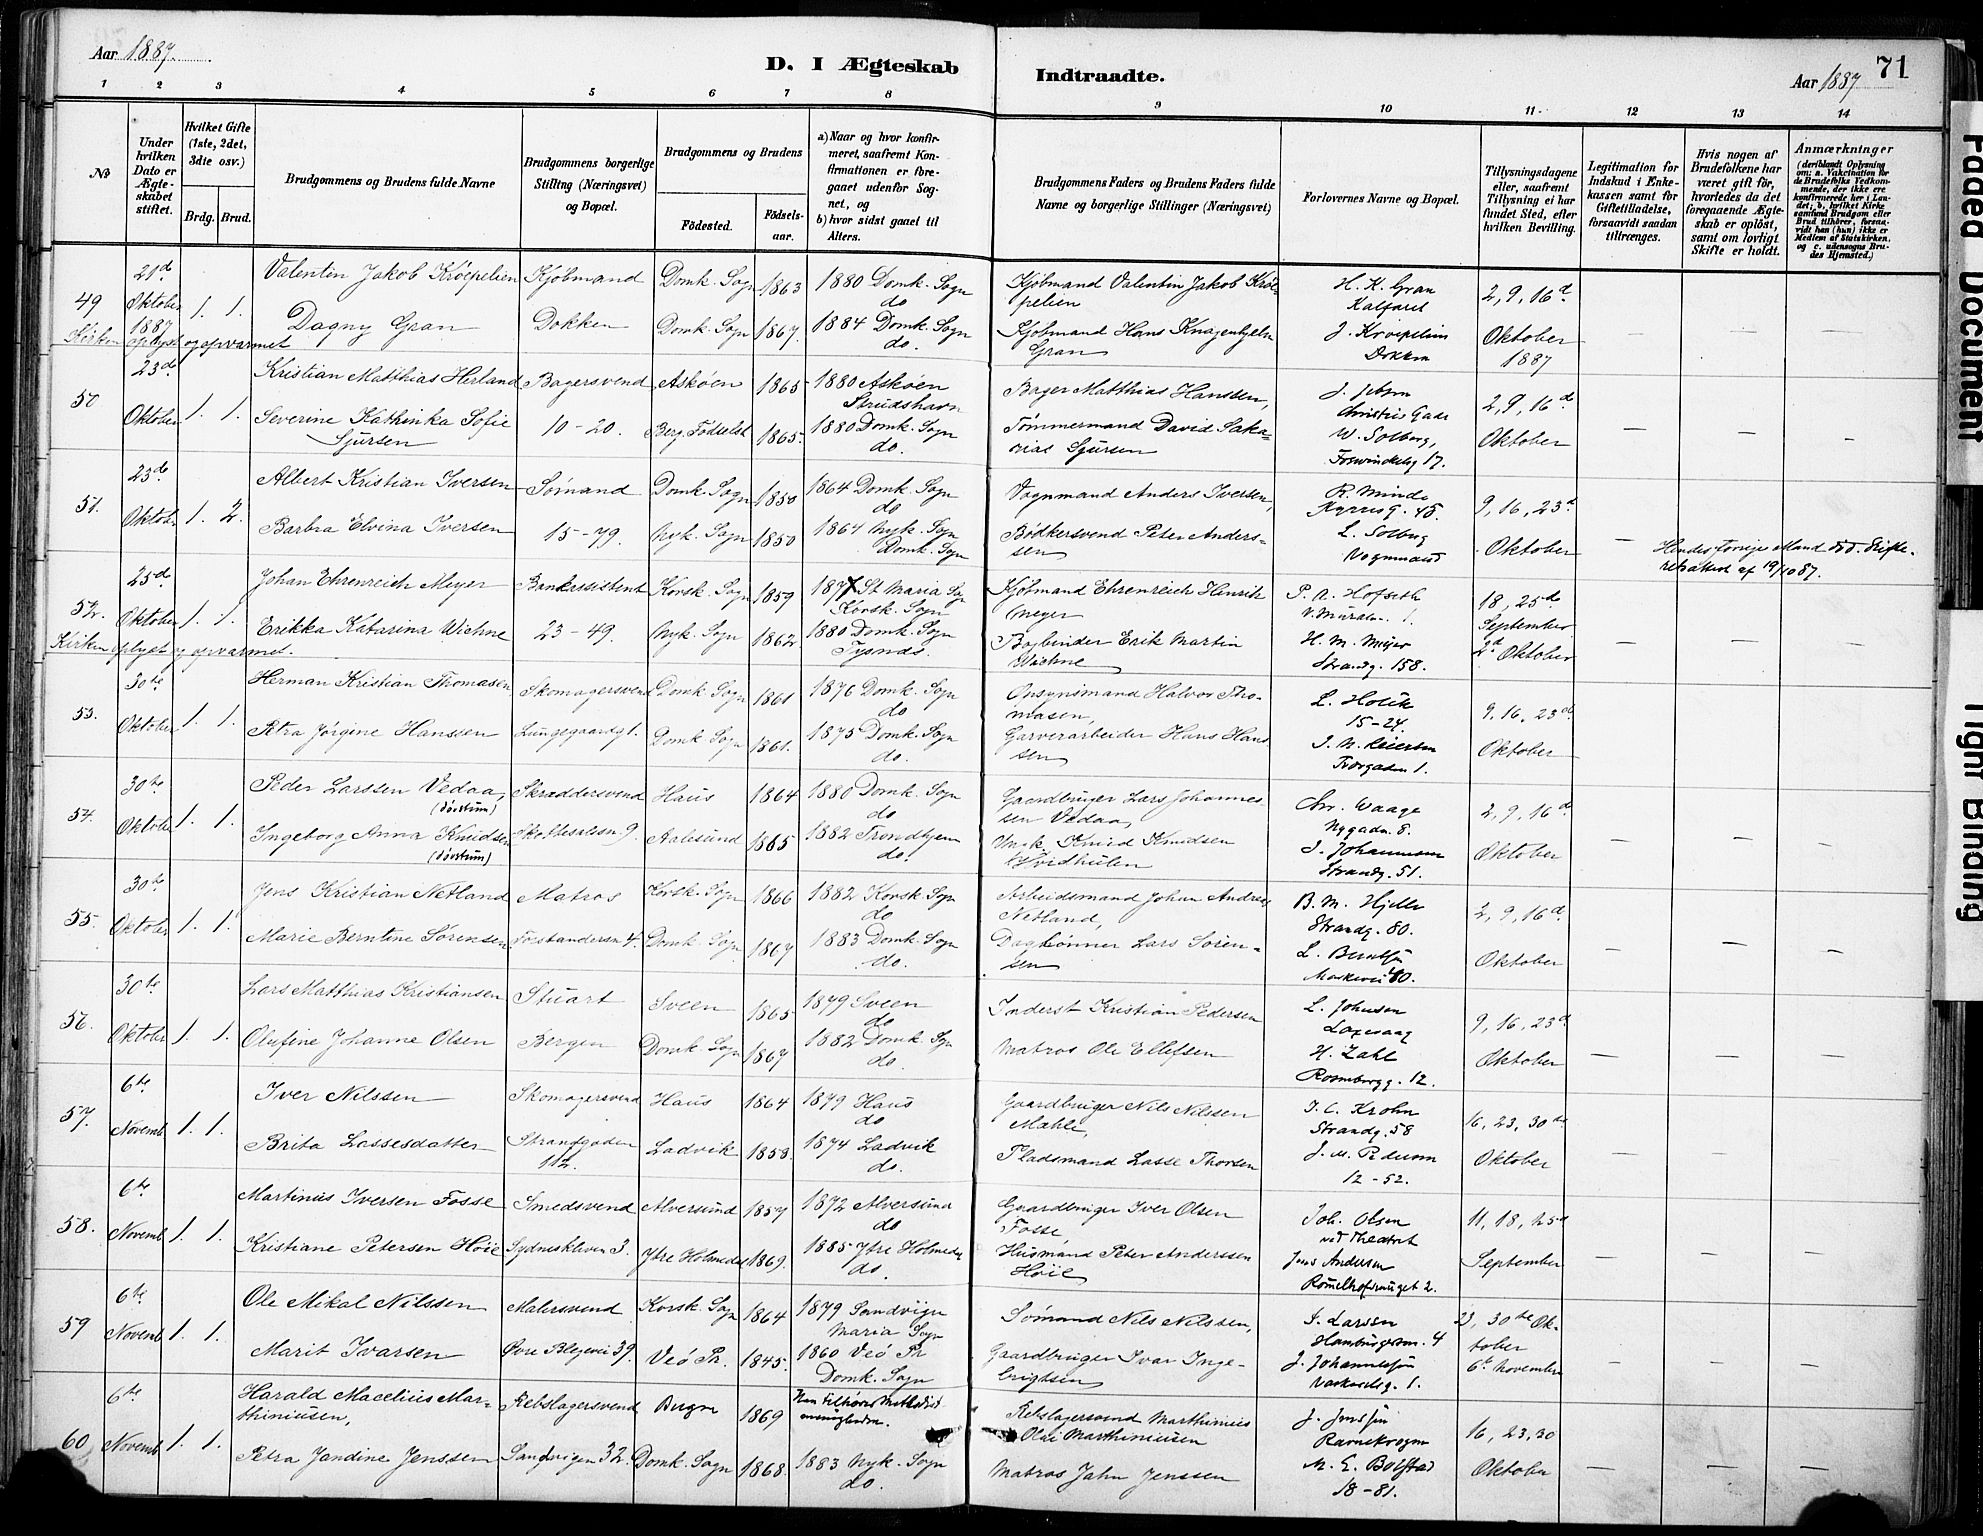 Aar 1887.
D. I Ægteskab
Indtraadte.
Aar 1887
71
1 2 3 4 5 6 7 8 9 10 11 12 13 14
No
Under hvilken Dato er Ægteskabet stiftet.
Hvilket Gifte (1ste, 2det, 3die osv.)
Brdg. Brud.
Brudgommens og Brudens fulde Navne
Brudgommens borgerlige Stilling (Næringsvei) og Bopæl.
Brudgommens og Brudens
Fødested.
Fødselsaar.
a) Naar og hvor konfirmeret, saafremt Konfirmationen er foregaaet udenfor Sognet, og
b) hvor sidst gaaet til Alters.
Brudgommens Faders og Brudens Faders fulde Navne og borgerlige Stillinger (Næringsvei)
Forlovernes Navne og Bopæl.
Tillysningsdagene eller, saafremt Tillysning ei har fundet Sted, efter hvilken Bevilling.
Legitimation for Indskud i Enkekassen samt for Giftetilladelse, forsaavidt saadan tiltrænges.
Hvis nogen af Brudefolkene har været gift før, hvorledes da det foregaaende Ægteskab er opløst, samt om lovligt Skifte er holdt.
Anmærkninger
(deriblandt Oplysning om: a. Vakcination for de Brudefolks Vedkommende, der ikke ere konfirmerede her i Landet; b. hvilket Kirkesamfund Brudgom eller Brud tilhører, forsaavidt han (hun) ikke er Medlem af Statskirken, og c. udensogns Brudes Hjemsted.)
49
21de Oktober 1887
Kirken oplyst og opvarmet
1. 1.
Valentin Jakob Kröepelien Kjöbmand Domk. Sogn 1863 1880 Domk. Sogn do
Kjöbmand Valentin Jakob Kröepelien
H. K. Gran Kalfaret
2, 9, 16de Oktober 1887
Dagny Gran Dokken Domk. Sogn 1867. 1884 Domk. Sogn do.
Kjöbmand Hans Knagenhjelm Gran
J. Kroepelien Dokken
50
23de Oktober 1. 1.
Kristian Matthias Herland Bagersvend Askøen 1865 1880 Askøen Strudshavn
Bager Matthias Hanssen,
2, 9, 16de Oktober
Severine Kathinka Sofie Sjursen 10-20. Berg. Fødselst. 1865. 1880 Domk. Sogn do.
Tømmermand David Sakarias Sjursen
W. Solberg,
51.
23de Oktob. 1. 2.
Albert Kristian Iversen Sømand Domk. Sogn 1850 1864 Domk. Sogn do
Vognmand Anders Iversen,
R. Minde
9, 16, 23de Oktober
Barbra Elvina Iversen 15-79. Nyk. Sogn 1850 1864 Nyk. Sogn Domk. Sogn
Bødkersvend Peter Anderssen
L. Solberg Vognmand
Hendes forrige Mand död. Skifteretsattest af 19/10 87.
52.
25de Oktober 1. 1.
Kirken oplyst og opvarmet.
Johan Ehrenreich Meyer Bankassistent Korsk. Sogn 1859 1877 St Maria Sogn Korsk. Sogn
Kjöbmand Ehrenreich Henrik Meyer
18, 25de September 2d Oktober
Erikka Katarina Wiehne 23-49. Nyk. Sogn 1862. 1880 Domk. Sogn Tysnæs.
Bogbinder Erik Martin Wiehne
H. M. Meyer Strandg. 158.
53.
30te Oktober 1. 1.
Herman Kristian Thomasen Skomagersvend Domk. Sogn 1861 1876 Domk. Sogn do
Opsynsmand Halvor Thomasen,
15-24.
9, 16, 23de Oktober
Petra Jörgine Hanssen Lungegaardsg 1. Domk. Sogn 1861. 1875 Domk. Sogn do.
Garverarbeider Hans Hanssen
54.
30te Oktober 1. 1.
Peder Larssen Vedaa, (døvstum) Skræddersvend Haus 1864 1880 Domk. Sogn do
Gaardbruger Lars Johannessen Vedaa,
Chr. Waage Nygadn. 8.
2, 9, 16de Oktober
Ingeborg Anna Knudsen (døvstum) Aalesund 1865 1882 Trondhjem do.
Knud Knudsen
J. Johannesen Strandg. 51.
55.
30te Oktober 1. 1.
Jens Kristian Netland Matros Korsk. Sogn 1866 1882 Korsk. Sogn do
Arbeidsmand Johan Andreas Netland,
B. M. Hjelle Strandg. 80.
2, 9, 16de Oktober
Marie Berntine Sørensen Forstandersm. 4. Domk. Sogn 1867 1883 Domk. Sogn do.
Daglønner Lars Sørensen
56.
30te Oktober 1. 1.
Lars Matthias Kristiansen Stuart Sveen 1865 1879 Sveen do
Inderst Kristian Pedersen
L. Johnsen Laxevaag
9, 16, 23de Oktober
Olufine Johanne Olsen Bergen Domk. Sogn 1867 1882 Domk. Sogn do.
Matros Ole Ellefsen
H. Zahl Rosenbergg. 12.
57.
6te Novemb. 1. 1.
Iver Nilssen Skomagersvend Haus 1864 1879 Haus do
Gaardbruger Nils Nilssen Mahle,
J. C. Krohn Strandg. 58
16, 23, 30te Oktober
Brita Lassesdatter Strandgaden 112. Ladvik 1858. 1874 Ladvik do.
Pladsmand Lasse Thorsen
12-52.
58.
6te Novemb. 1. 1.
Martinus Iversen Fosse Smedsvend Alversund 1857 1872 Alversund do
Gaardbruger Iver Olsen Fosse,
Joh. Olsen ved Theatret
11, 18, 25de September
Kristiane Petersen Høie Sydneskleven 3. Ytre Holmedal 1869. 1885 Ytre Holmedal do.
Husmand Peter Anderssen Høie
Jens Andersen
59
6te Novemb. 1. 1.
Ole Mikal Nilssen Malersvend Korsk. Sogn 1864 1879 Sandvigen Maria Sogn
Sømand Nils Nilssen,
J. Larsen
23, 30te Oktober 6te November
Marit Ivarsen Øvre Blegevei 39. Veö Pr. 1845. 1860 Veö Pr Domk. Sogn
Gaardbruger Ivar Ingebrigtsen
J. Johannessen
60
6te Novemb. 1. 1.
Harald Macelius Marthiniusen, Rebslagersvend Bergen 1869 Han tilhører Methodistmenigheden.
Rebslagersvend Marthinius Olai Marthiniusen
J. Jenssen
16, 23, 30 Oktober
Petra Jandine Jenssen Sandvigen 32. Domk. Sogn 1868. 1883 Nyk. Sogn do.
Matros Jahn Jenssen
M. E. Bolstad 18-81.
Faded Document
Tight Binding